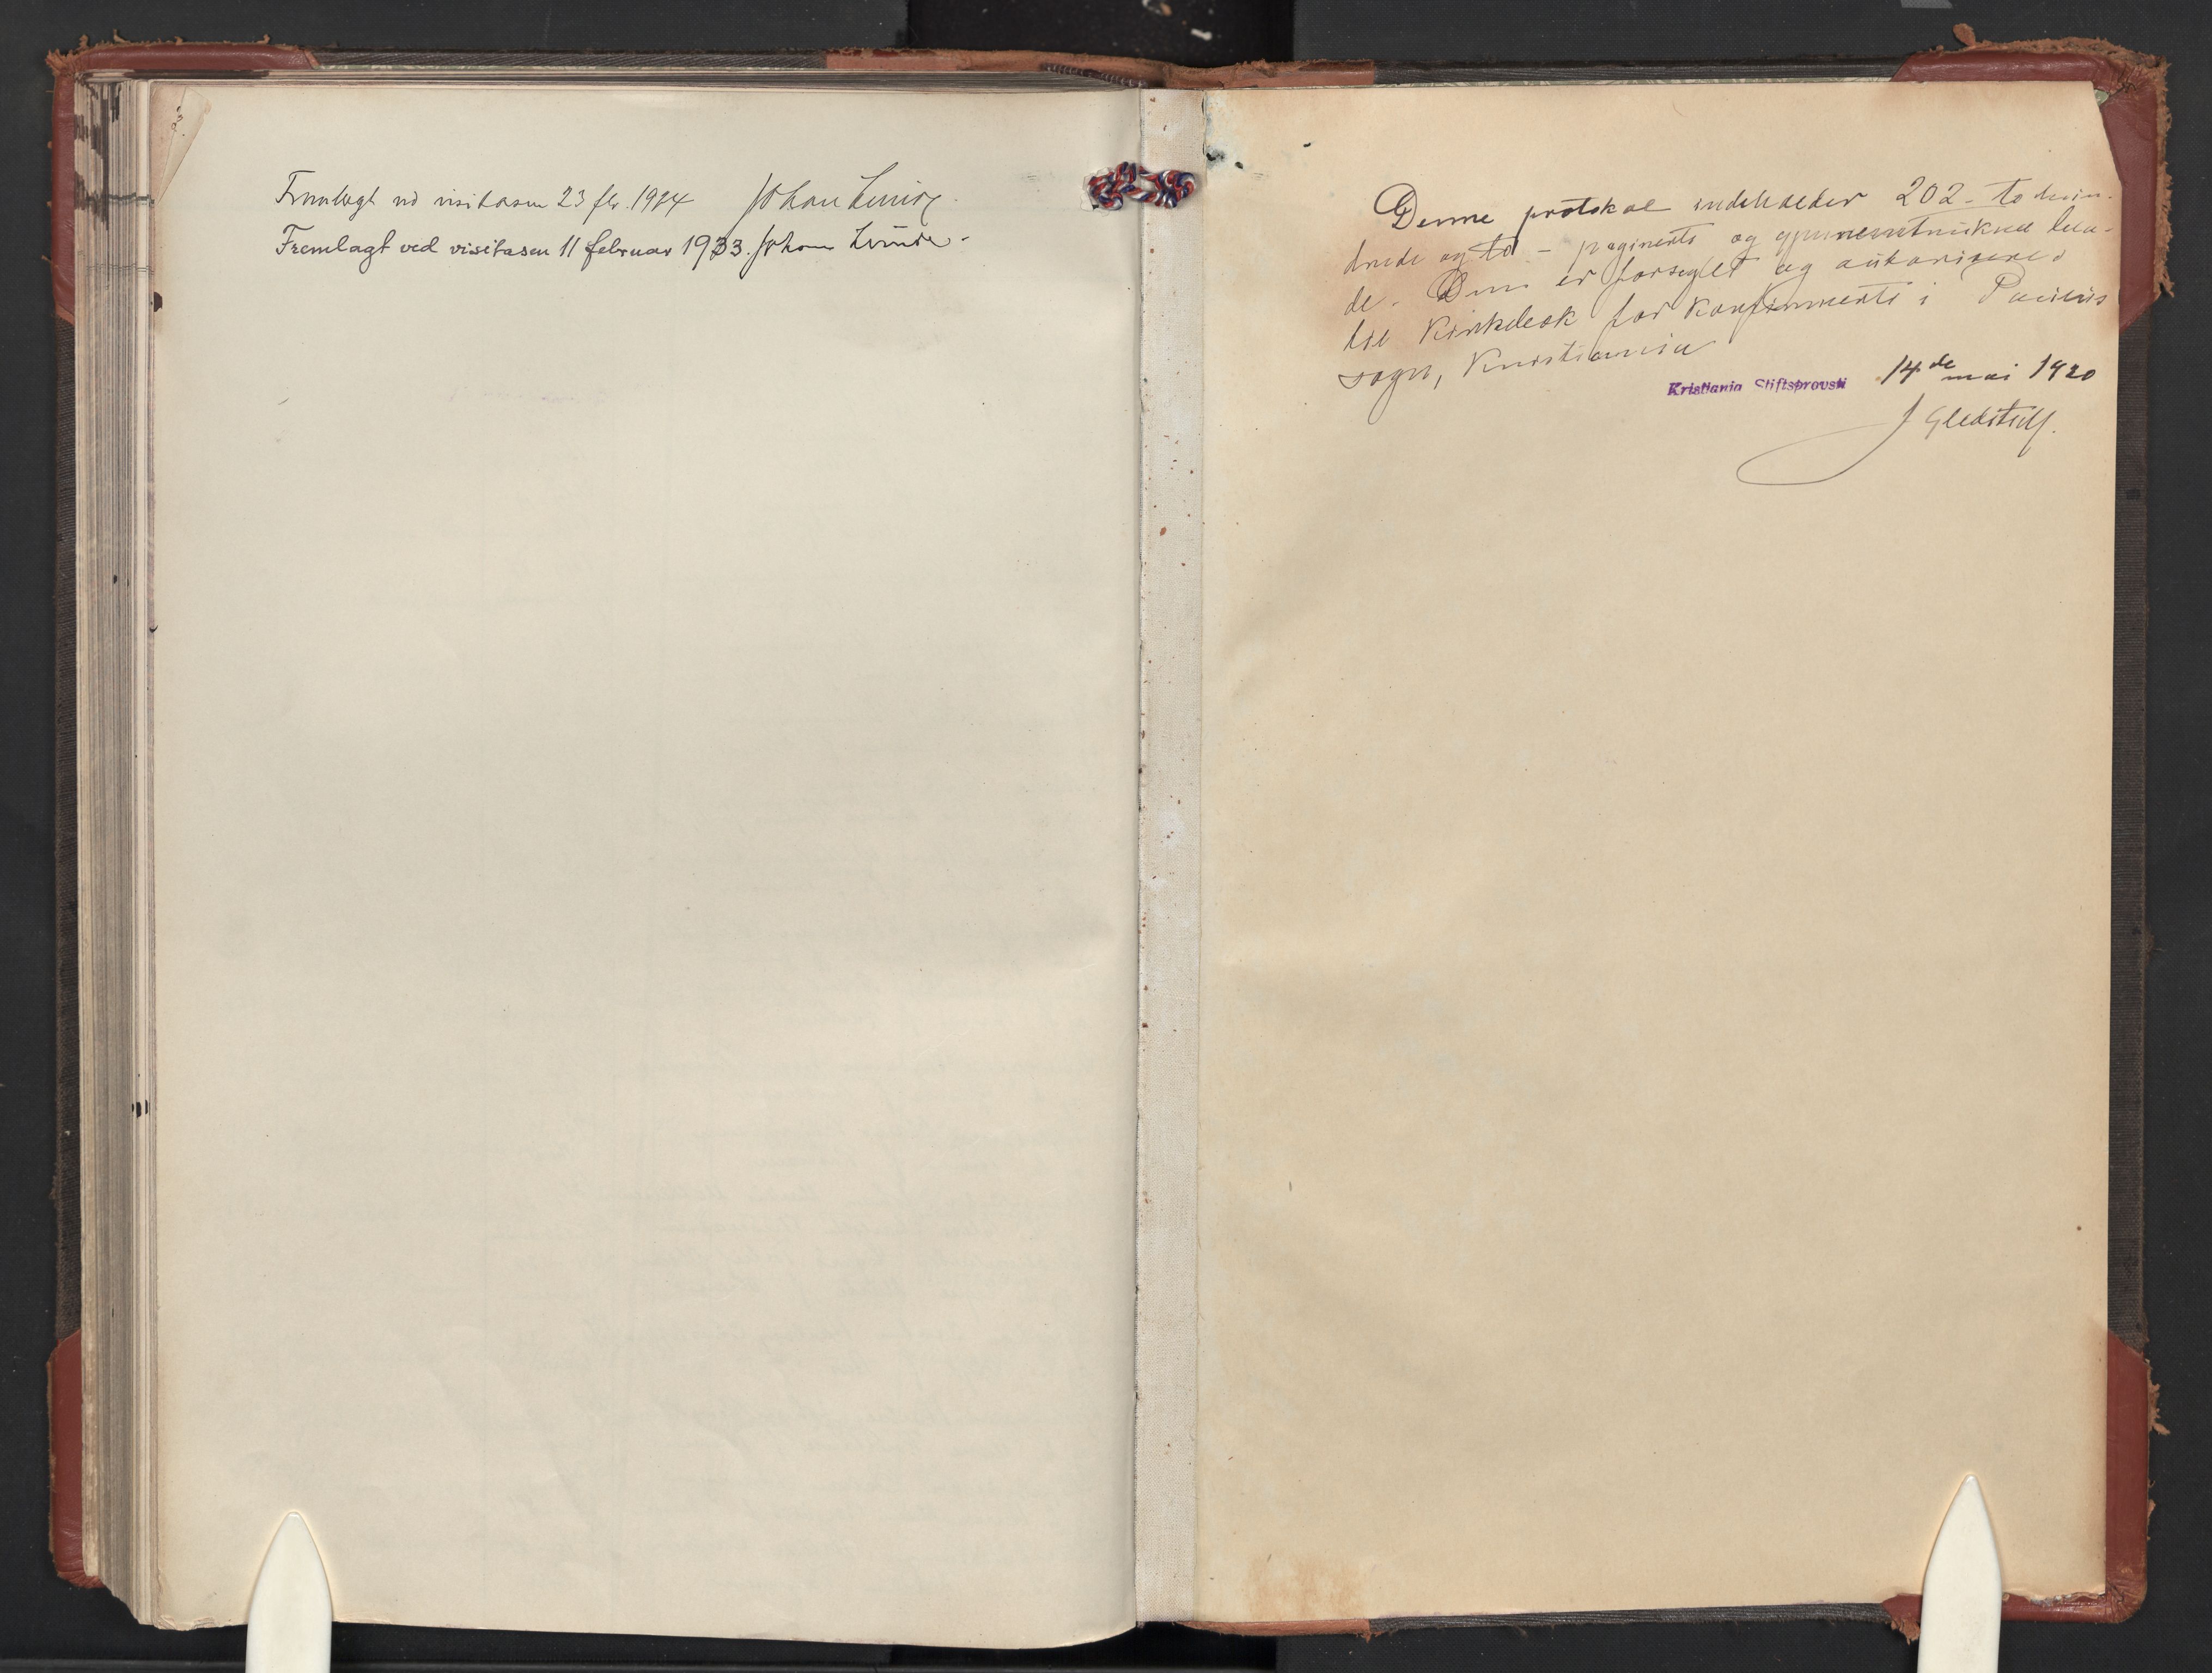 Fremlagt ved visitasen 23 feb. 1924 Johan Lunde.
Fremlagt ved visitasen 11 februar 1933. Johan Lunde.
Denne protokol indeholder 202 - to hun-
drede og to - paginerte og gjennemtrukne bla-
de. Den er forseglet og autoriseret
til Kirkebok for Konfirmerte i Paulus
sogn, Kristiania
Kristiania Stiftsprovsti 14de mai 1920
J Gleditsch.